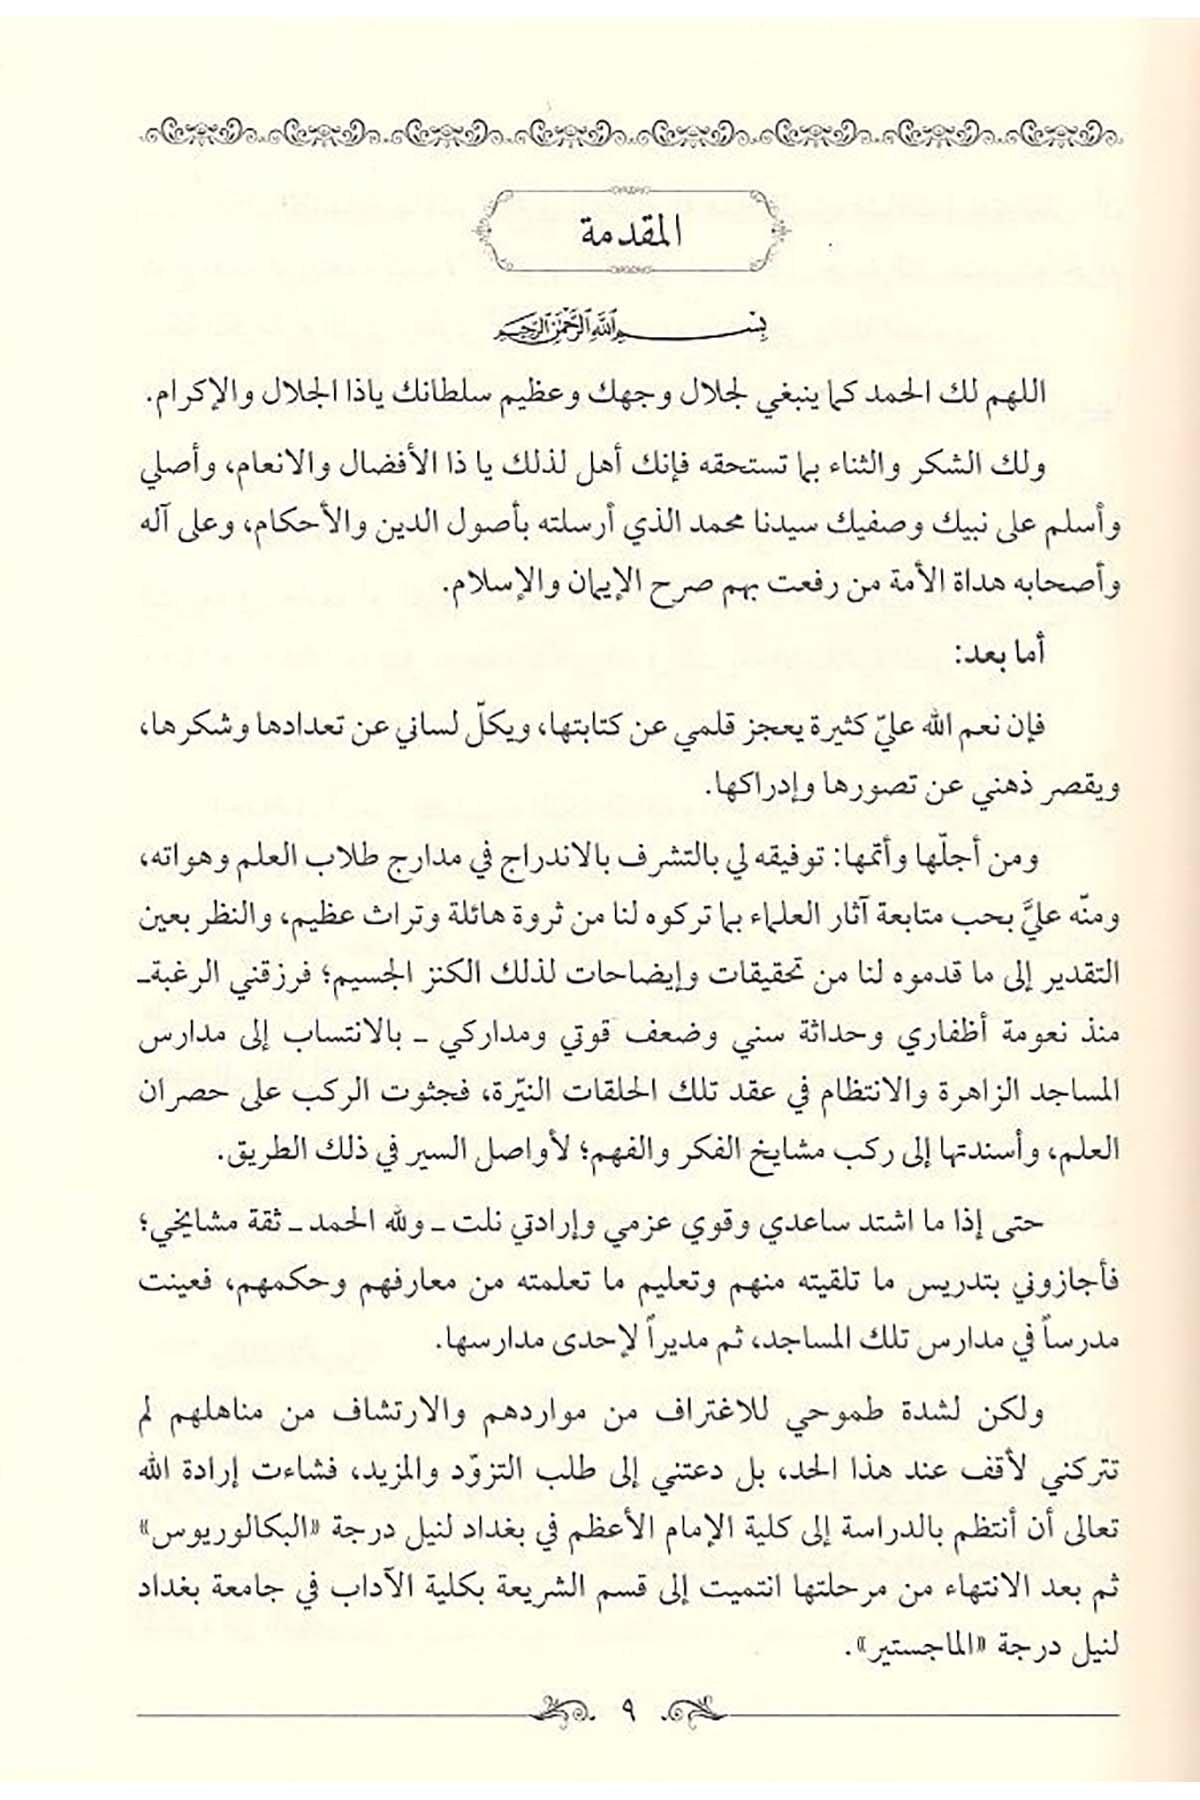 المقدمة
بسم الله الرحمن الرحيم
اللهم لك الحمد كما ينبغي لجلال وجهك وعظيم سلطانك ياذا الجلال والإكرام.
ولك الشكر والثناء بما تستحقه فإنك أهل لذلك يا ذا الأفضال والانعام، وأصلي
وأسلم على نبيك وصفيك سيدنا محمد الذي أرسلته بأصول الدين والأحكام، وعلى آله
وأصحابه هداة الأمة من رفعت بهم صرح الإيمان والإسلام.
أما بعد:
فإن نعم الله عليّ كثيرة يعجز قلمي عن كتابتها، ويكلّ لساني عن تعدادها وشكرها،
ويقصر ذهني عن تصورها وإدراكها.
ومن أجلّها وأتمها: توفيقه لي بالتشرف بالاندراج في مدارج طلاب العلم وهواته،
ومنّه عليَّ بحب متابعة آثار العلماء بما تركوه لنا من ثروة هائلة وتراث عظيم، والنظر بعين
التقدير إلى ما قدموه لنا من تحقيقات وإيضاحات لذلك الكنز الجسيم؛ فرزقني الرغبة ـ
منذ نعومة أظفاري وحداثة سني وضعف قوتي ومداركي ـ بالانتساب إلى مدارس
المساجد الزاهرة والانتظام في عقد تلك الحلقات النيّرة، فجثوت الركب على حصران
العلم، وأسندتها إلى ركب مشايخ الفكر والفهم؛ لأواصل السير في ذلك الطريق.
حتى إذا ما اشتد ساعدي وقوي عزمي وإرادتي نلت ـ ولله الحمد ـ ثقة مشايخي؛
فأجازوني بتدريس ما تلقيته منهم وتعليم ما تعلمته من معارفهم وحكمهم، فعينت
مدرساً في مدارس تلك المساجد، ثم مديراً لإحدى مدارسها.
ولكن لشدة طموحي للاغتراف من مواردهم والارتشاف من مناهلهم لم
تتركني لأقف عند هذا الحد، بل دعتني إلى طلب التزوّد والمزيد، فشاءت إرادة الله
تعالى أن أنتظم بالدراسة إلى كلية الإمام الأعظم في بغداد لنيل درجة «البكالوريوس»
ثم بعد الانتهاء من مرحلتها انتميت إلى قسم الشريعة بكلية الآداب في جامعة بغداد
لنيل درجة «الماجستير».
٩